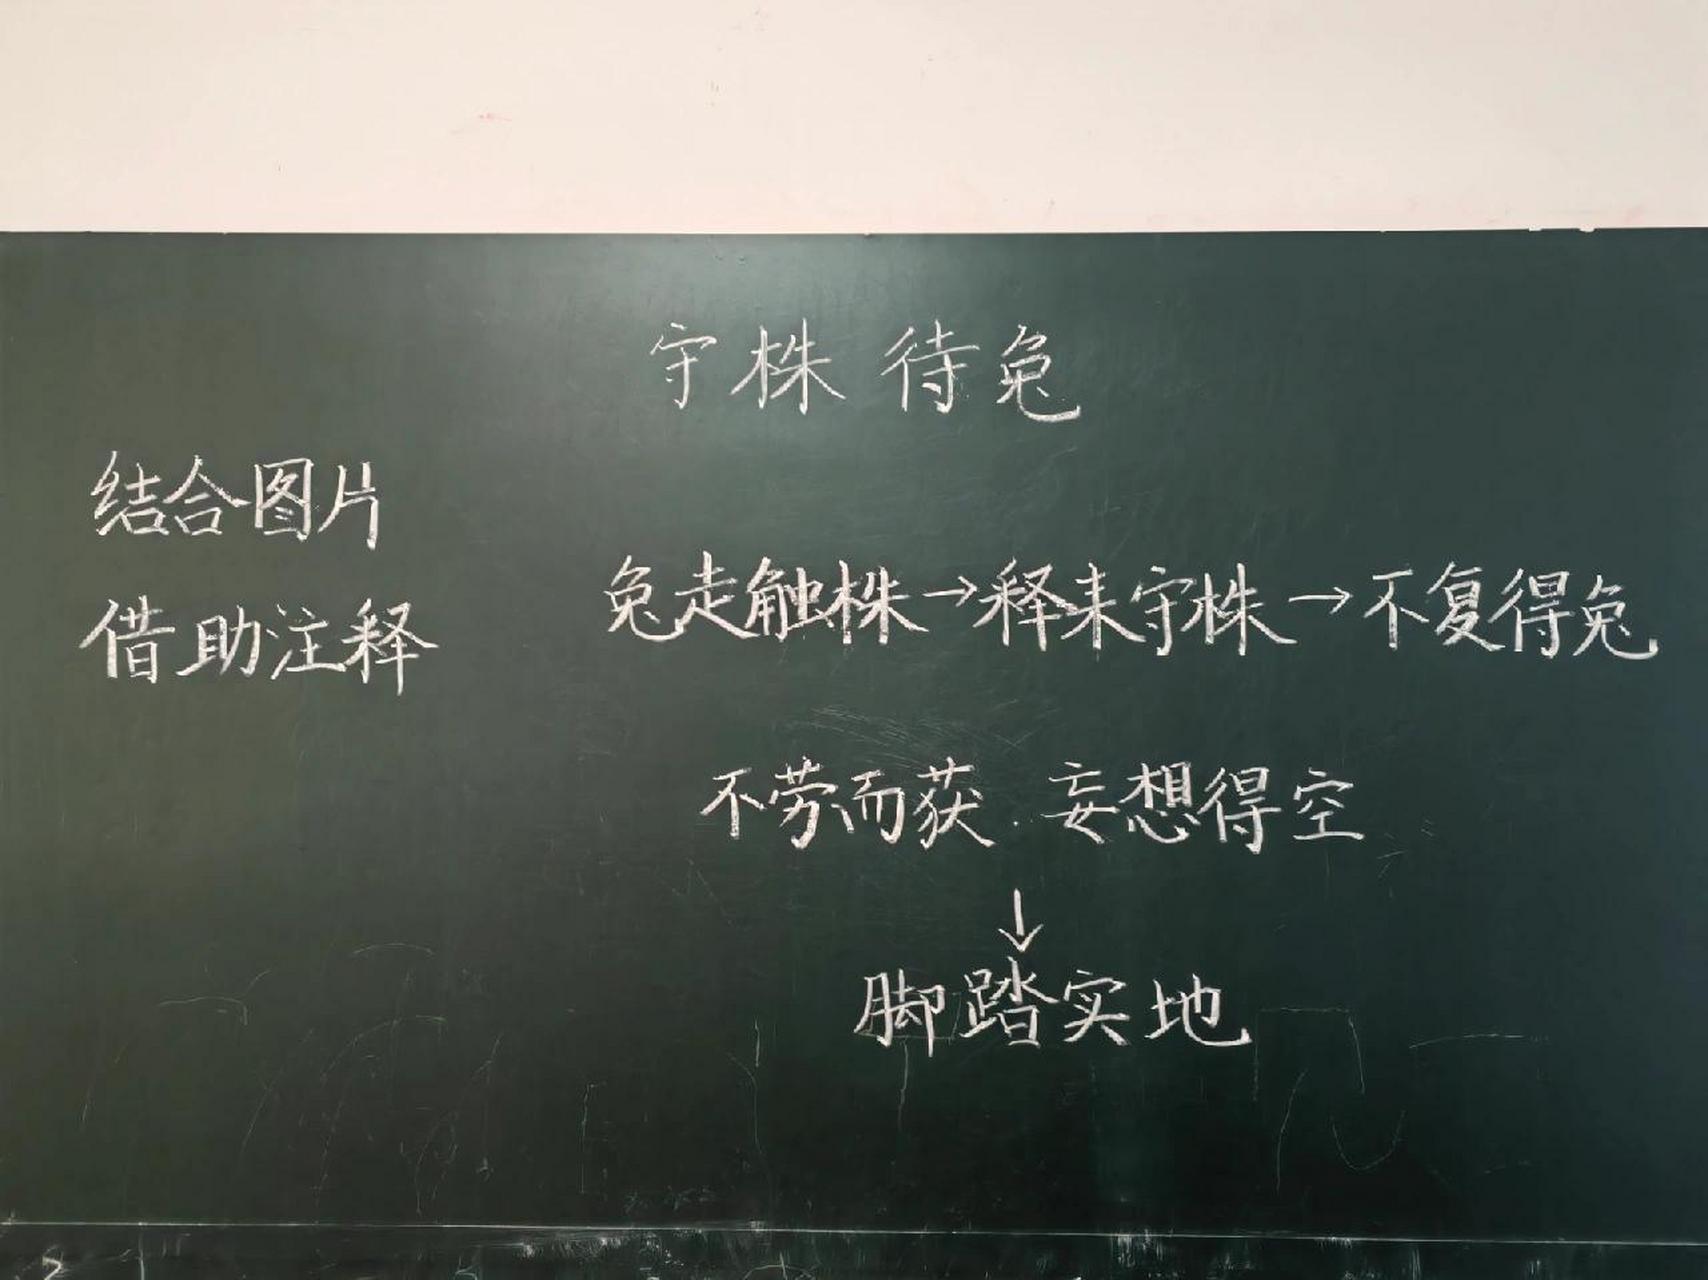 守株待兔
结合图片
借助注释
兔走触株→释耒守株→不复得兔
不劳而获 妄想得空
↓
脚踏实地